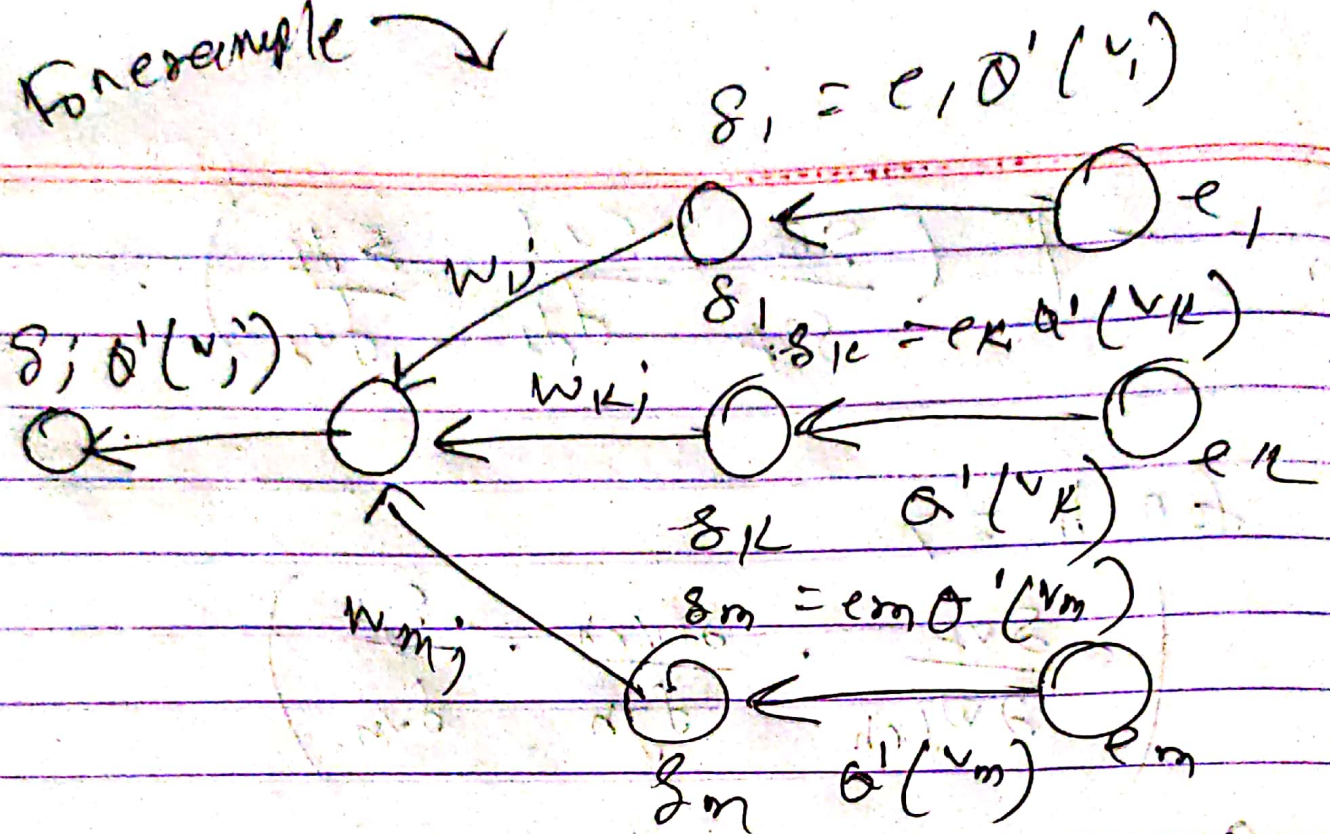 For example
δ₁ = e₁ Q'(v₁)
e₁
w₁j
δ₁
δk = ek Q'(vk)
δj Q'(vj)
wkj
ek
δk
Q'(vk)
wmj
δm = em Q'(vm)
em
δm
Q'(vm)